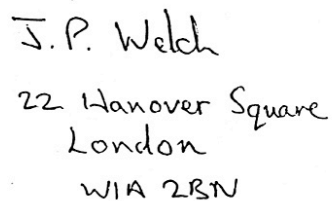 J.P. Welch
22 Hanover Square
London
W1A 2BN